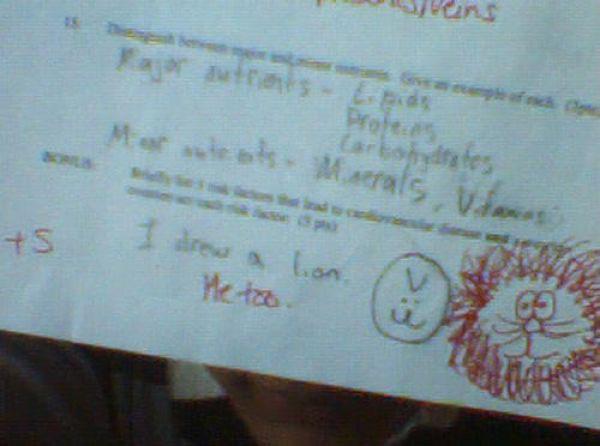 veins
18. Distinguish between major and minor nutrients. Give an example of each. (2pts)
Major nutrients - Lipids
Proteins
Carbohydrates
Minor nutrients - Minerals, Vitamins
BONUS: Briefly list 5 risk factors that lead to cardiovascular disease and
each risk factor. (5 pts)
+5
I drew a lion.
Me too.